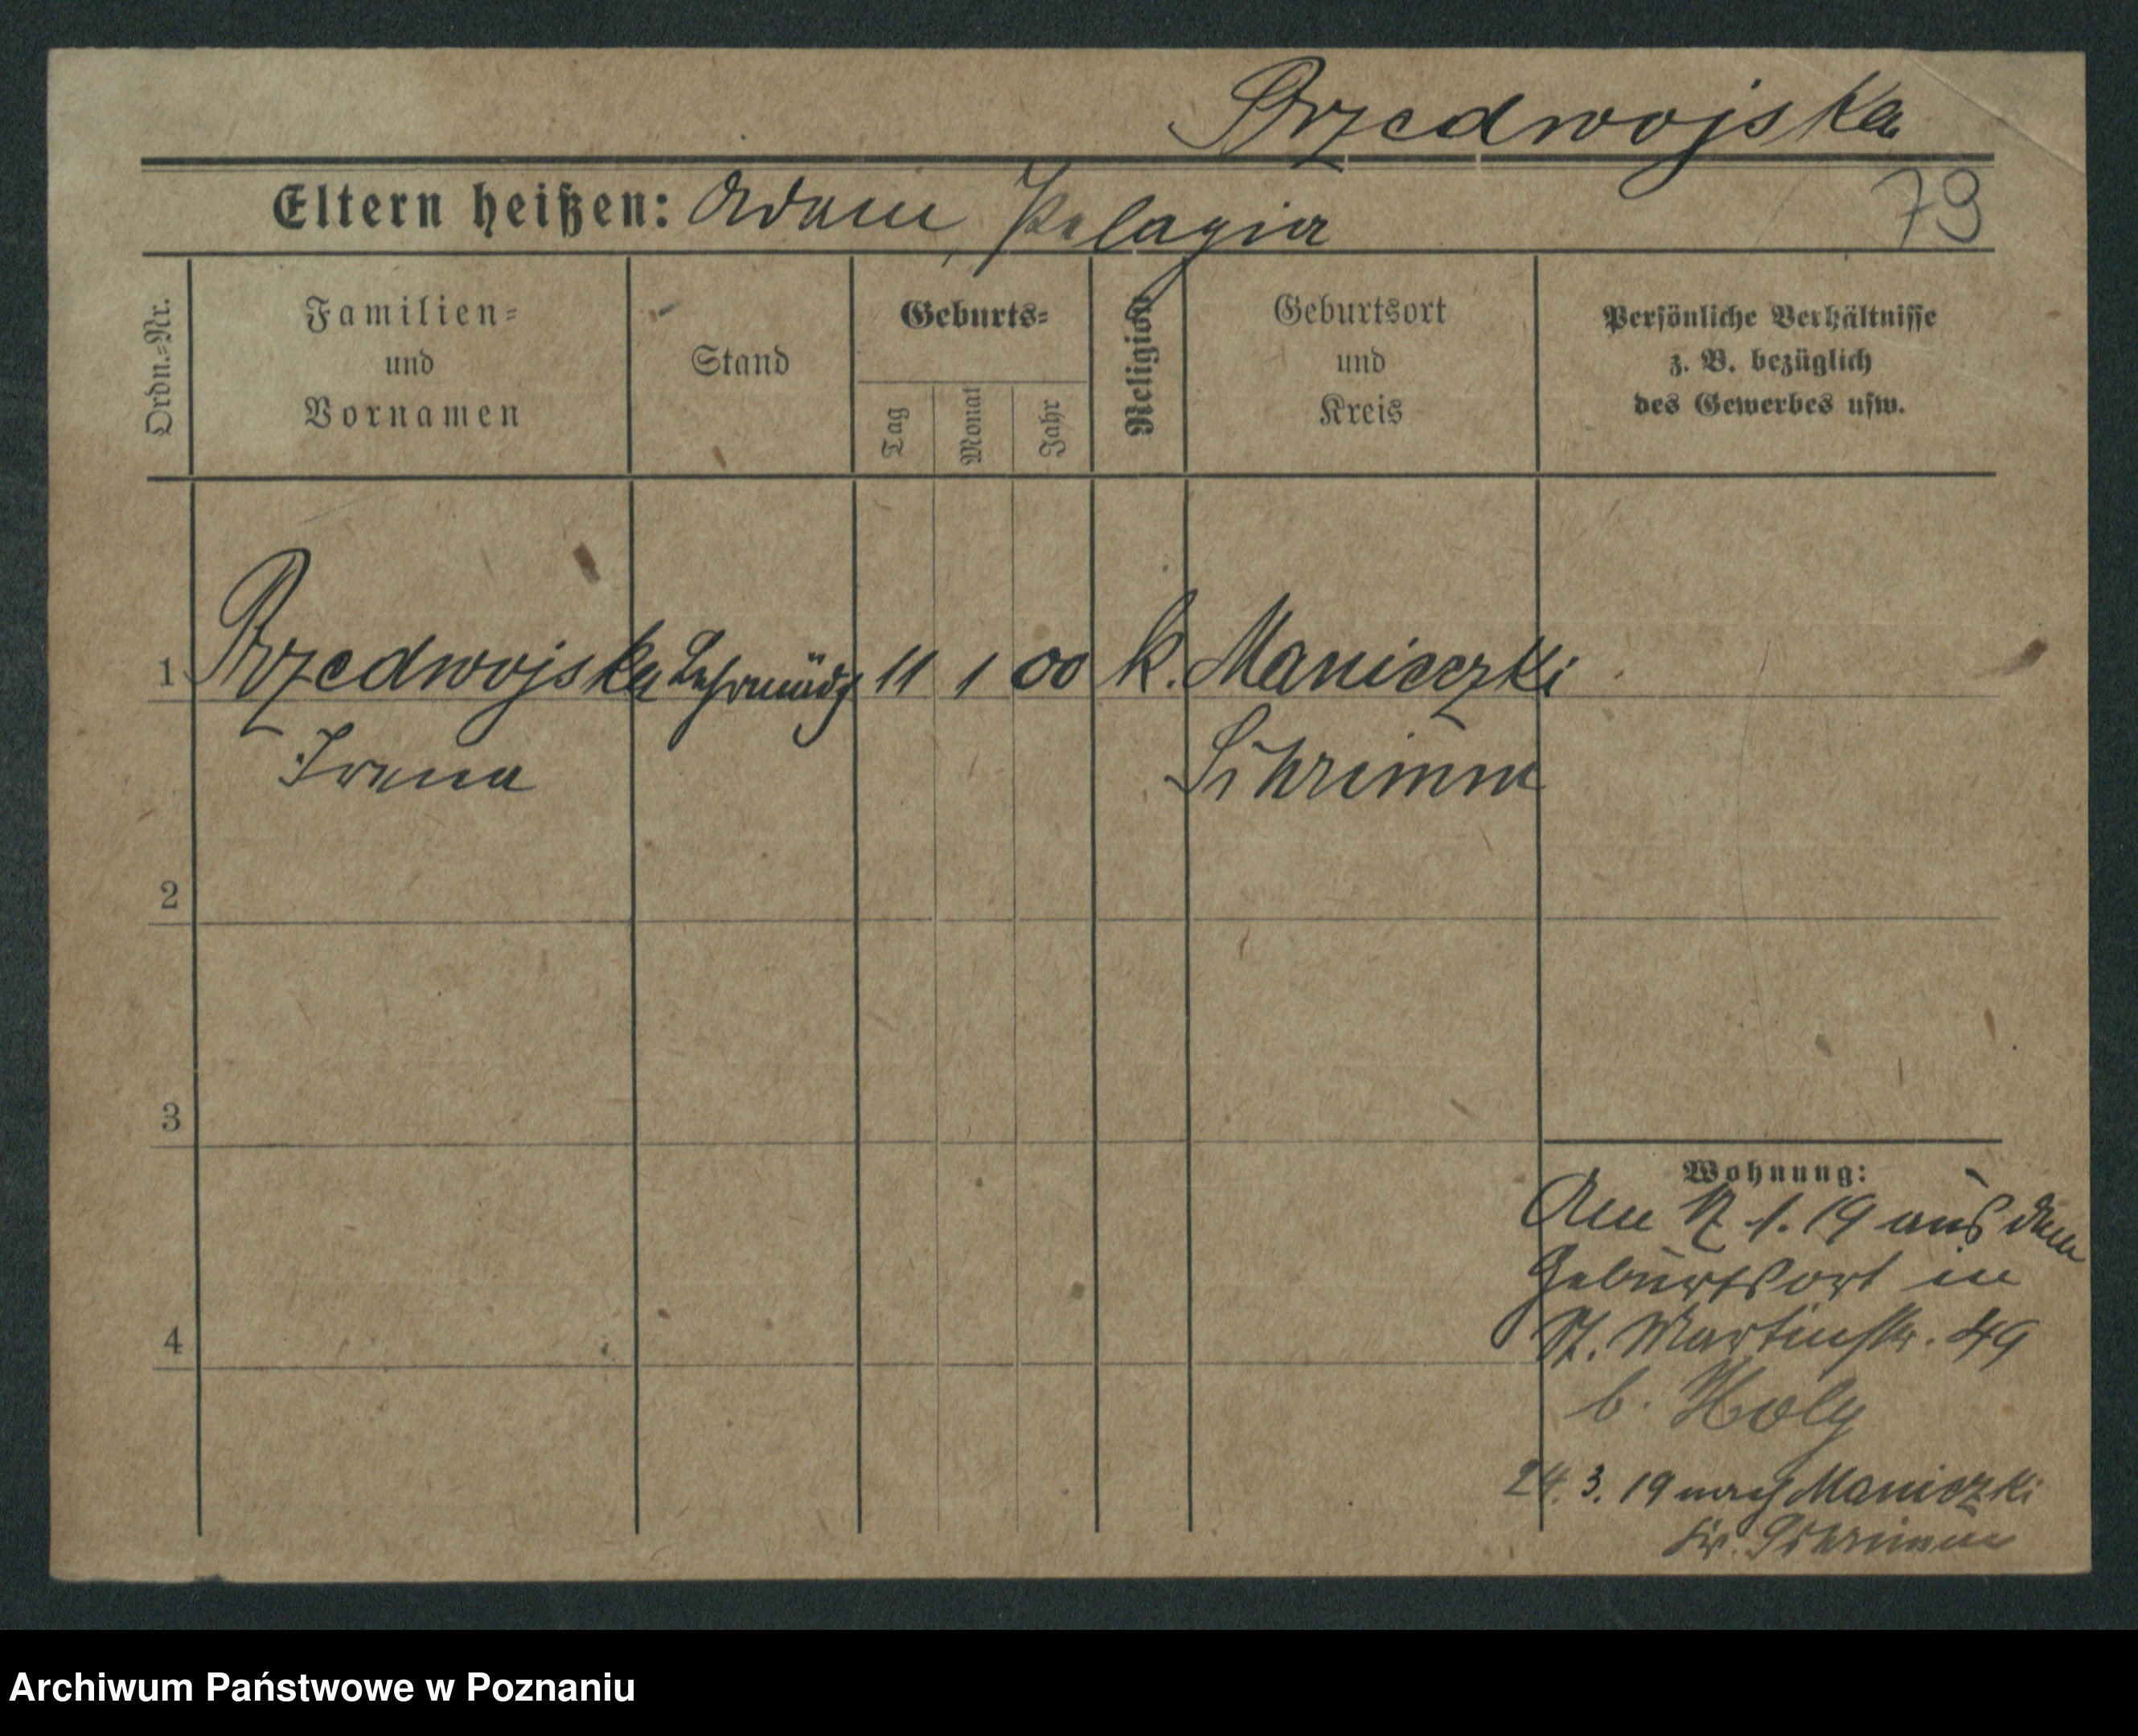 Przedwojska
Eltern heißen: Adam, Pelagia 79
Ordn.=Nr.
Familien=
und
Vornamen
Stand
Geburts=
Tag
Monat
Jahr
Religion
Geburtsort
und
Kreis
Persönliche Verhältnisse
z. B. bezüglich
des Gewerbes usw.
1 Przedwojska 11 1 00 k. Manieczki
Irena Schrimm
2
3
4
Wohnung:
Am 1. 19 aus dem
Geburtsort in
St. Martinstr. 49
b. Holy
24. 3. 19 nach Manieczki
Kr. Schrimm
Archiwum Państwowe w Poznaniu